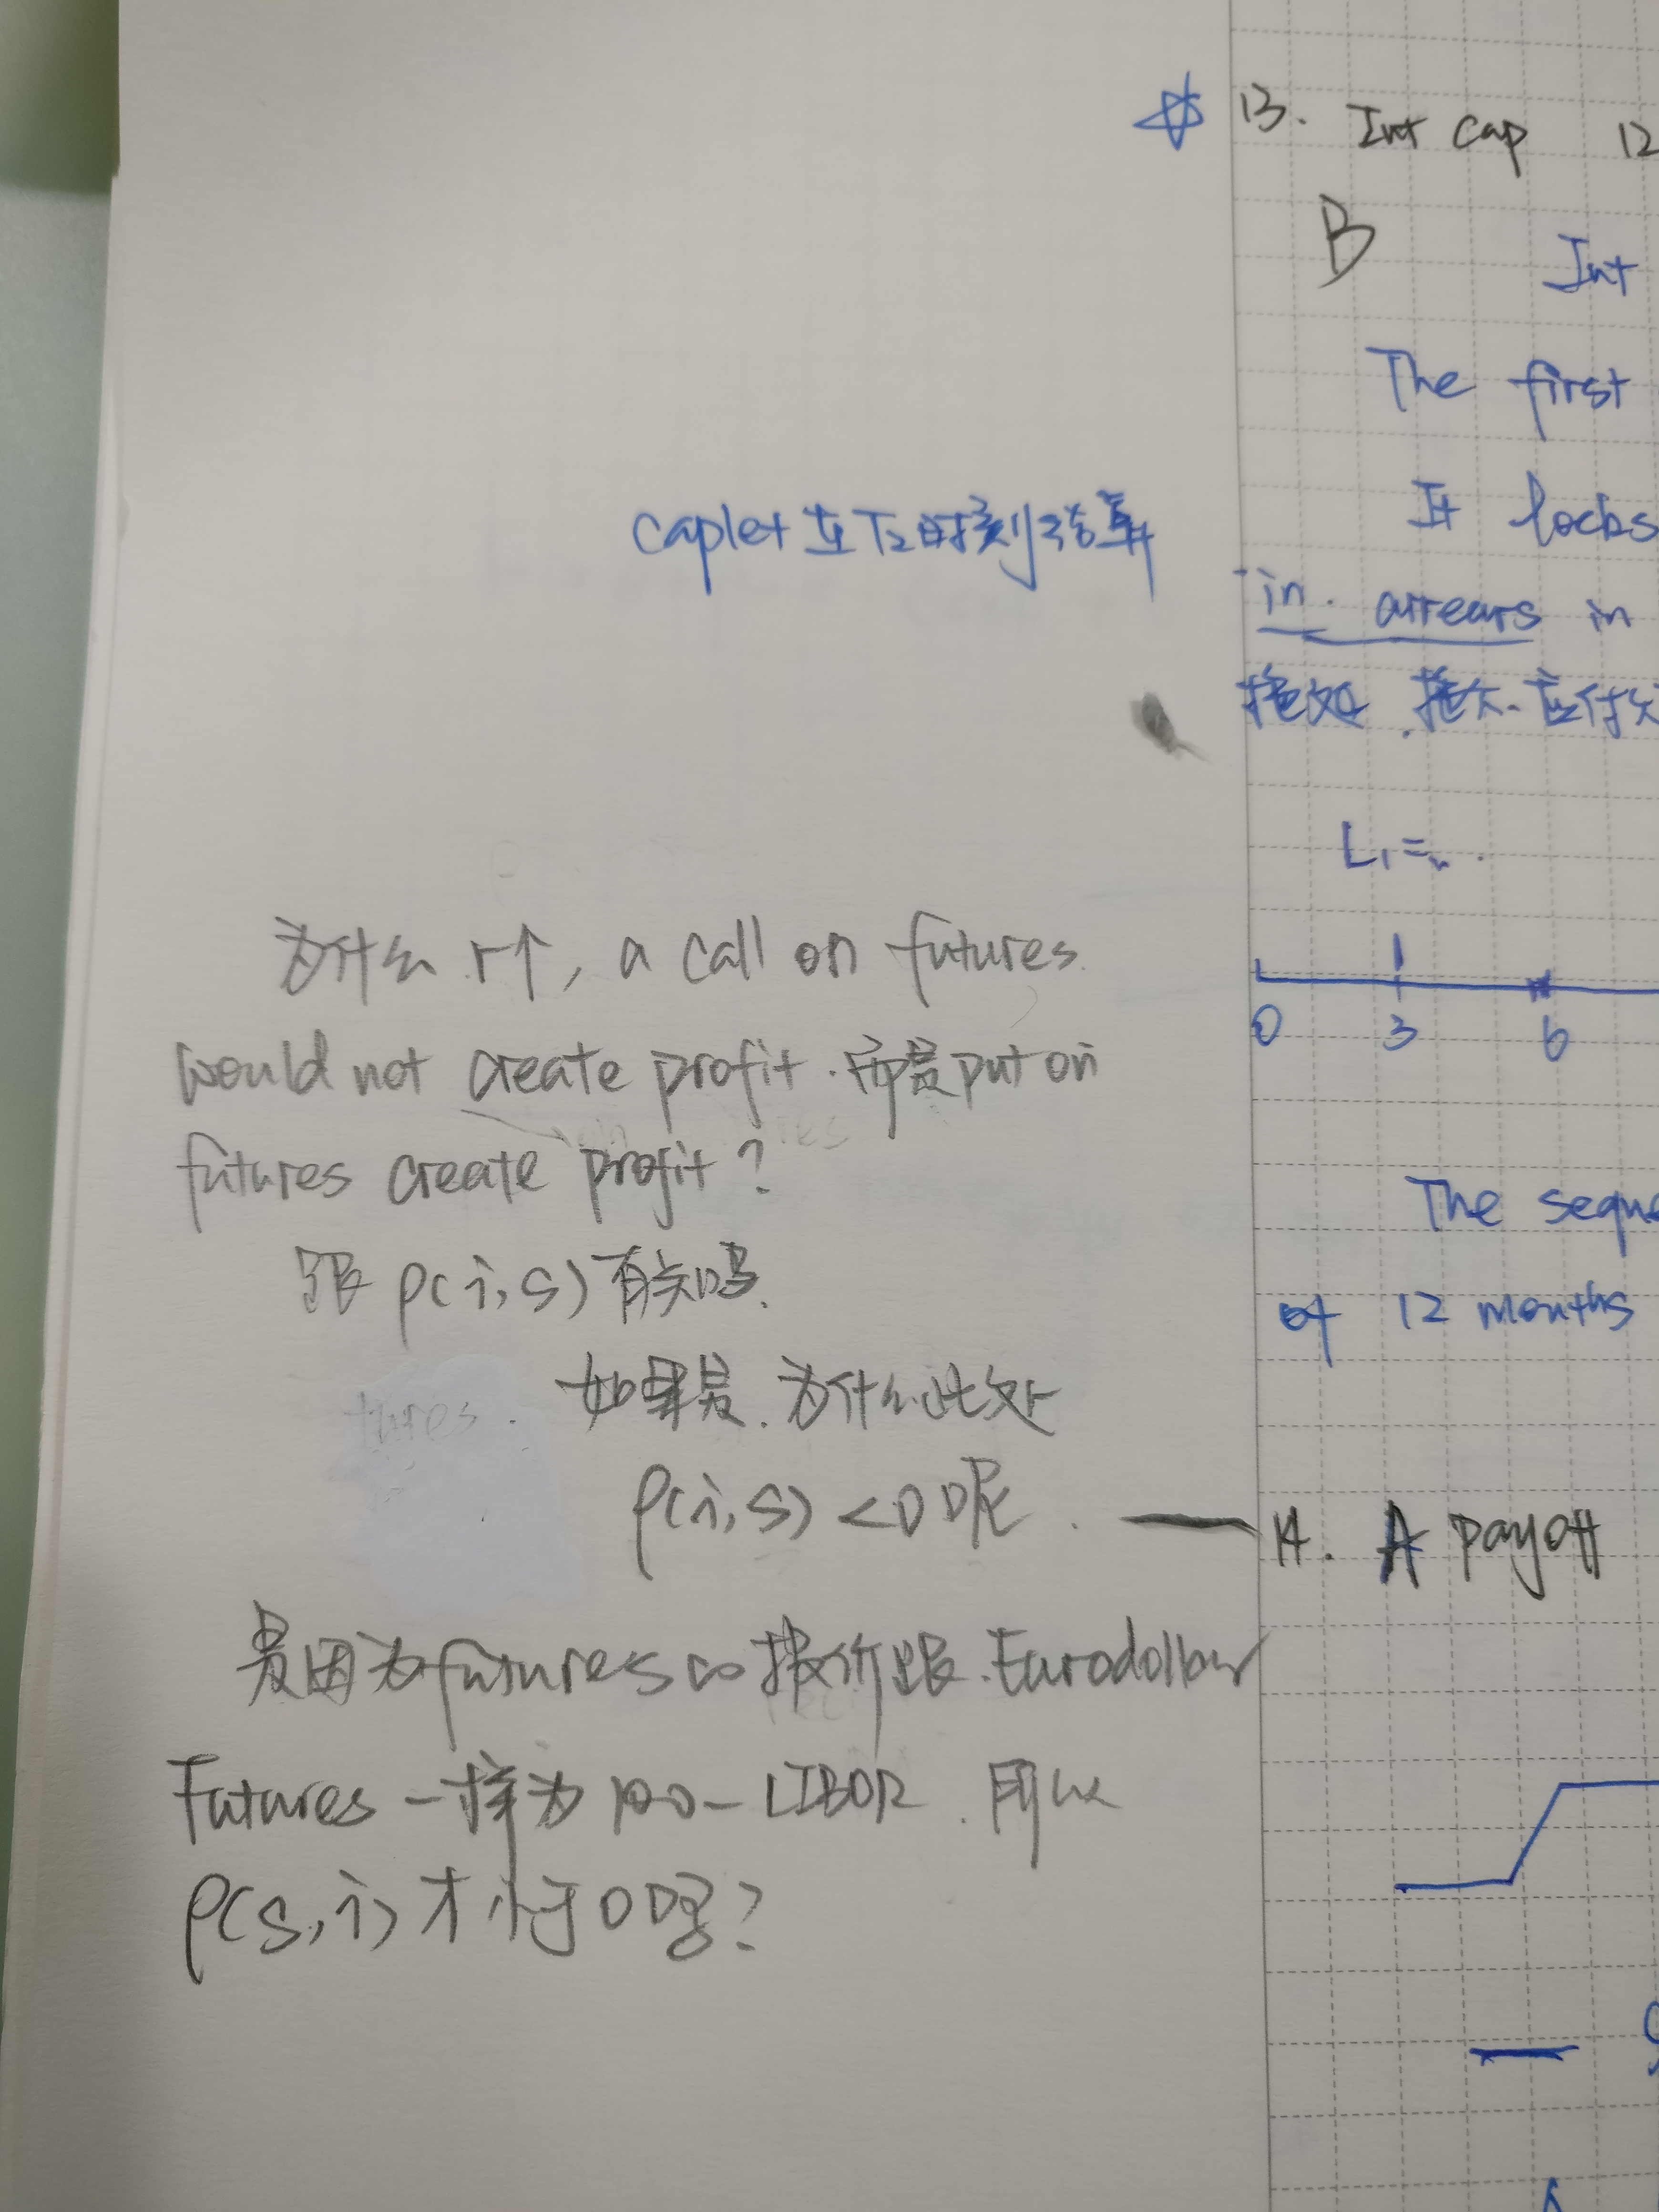 13. Int cap 12
B Int
The first
It locks
caplet 在T₂时刻结算
in arrears in
L₁=
为什么 r↑, a call on futures
would not create profit. 而是put on
futures create profit?
跟 ρ(i,s)有关吗.
如果是. 为什么此处
ρ(i,s) <0 呢.
是因为futures的报价跟.Eurodollar
Futures 一样为 100-LIBOR. 所以
ρ(s,i)才小于0吗?
0 3 6
The seque
of 12 months
14. A payoff